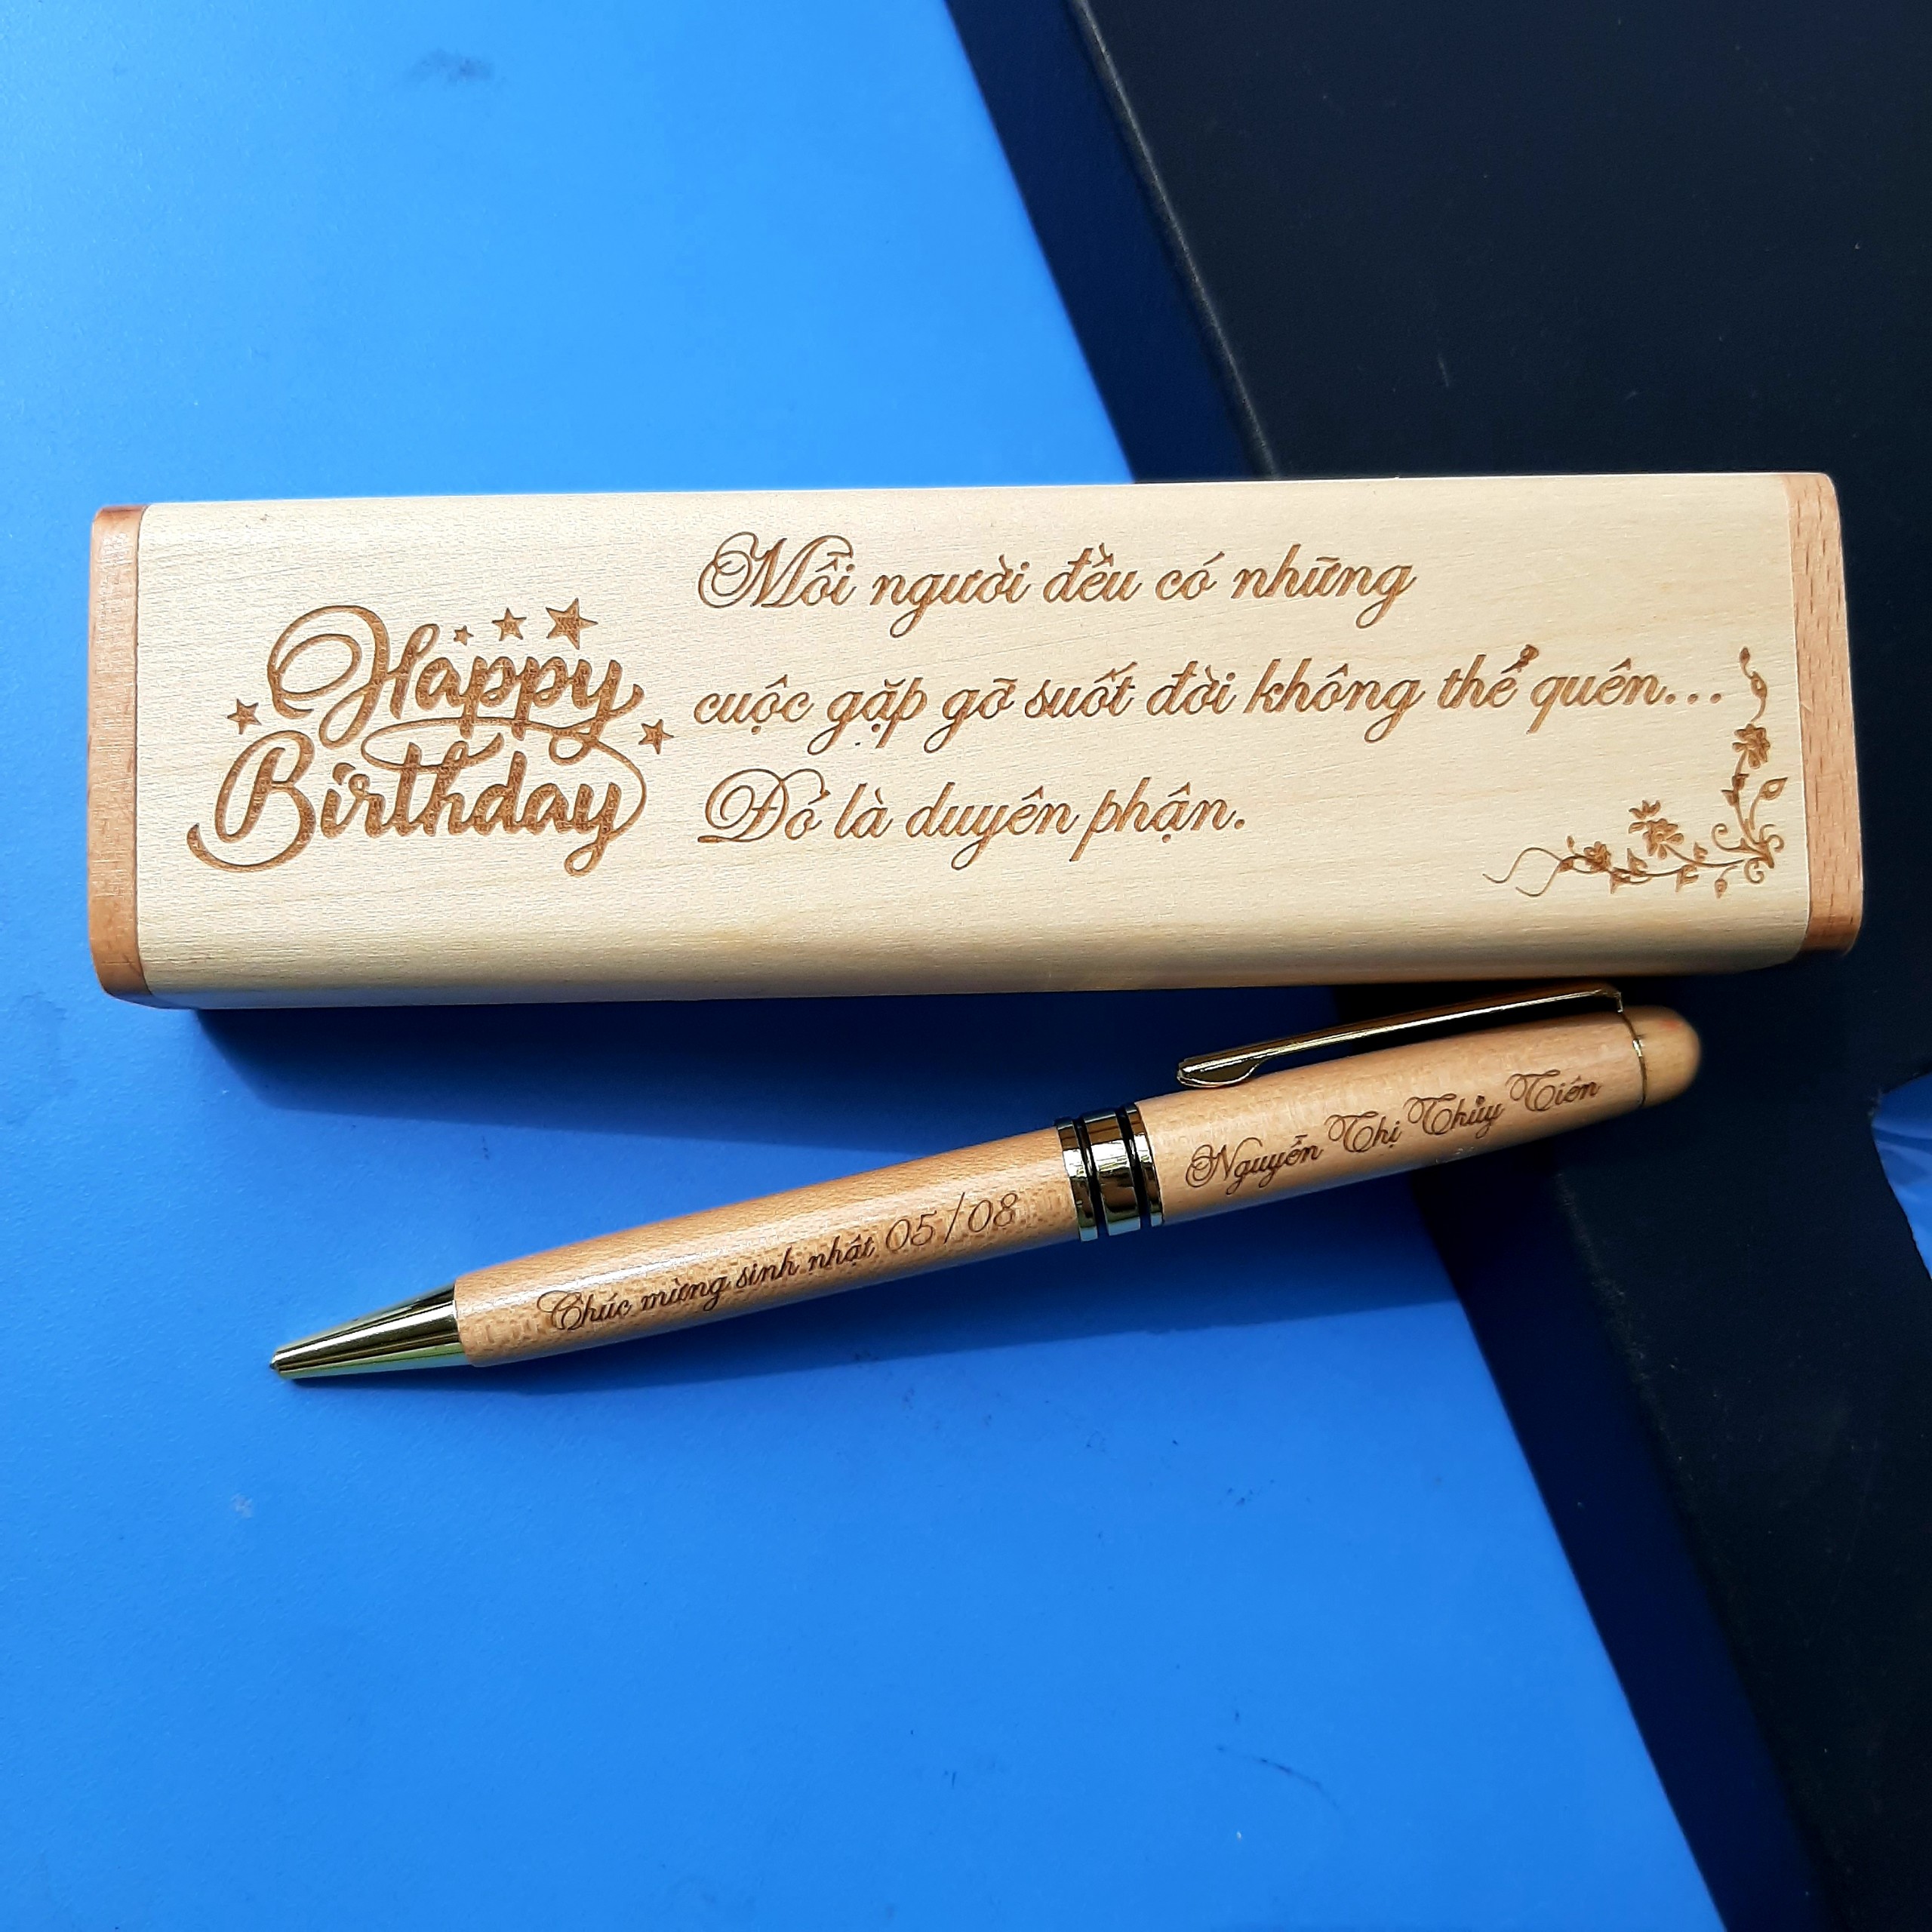 Happy
Birthday
Mỗi người đều có những
cuộc gặp gỡ suốt đời không thể quên...
Đó là duyên phận.
Chúc mừng sinh nhật 05/08
Nguyễn Thị Thủy Tiên